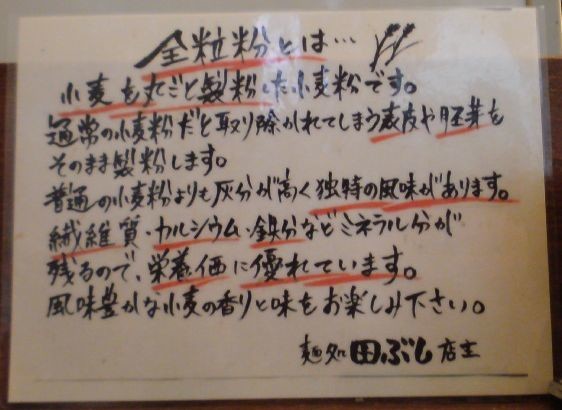 全粒粉とは…
小麦を丸ごと製粉した小麦粉です。
通常の小麦粉だと取り除かれてしまう表皮や胚芽を
そのまま製粉します。
普通の小麦粉よりも灰分が高く独特の風味があります。
繊維質・カルシウム・鉄分などミネラル分が
残るので、栄養価に優れています。
風味豊かな小麦の香りと味をお楽しみ下さい。
麺処 田ぶし 店主